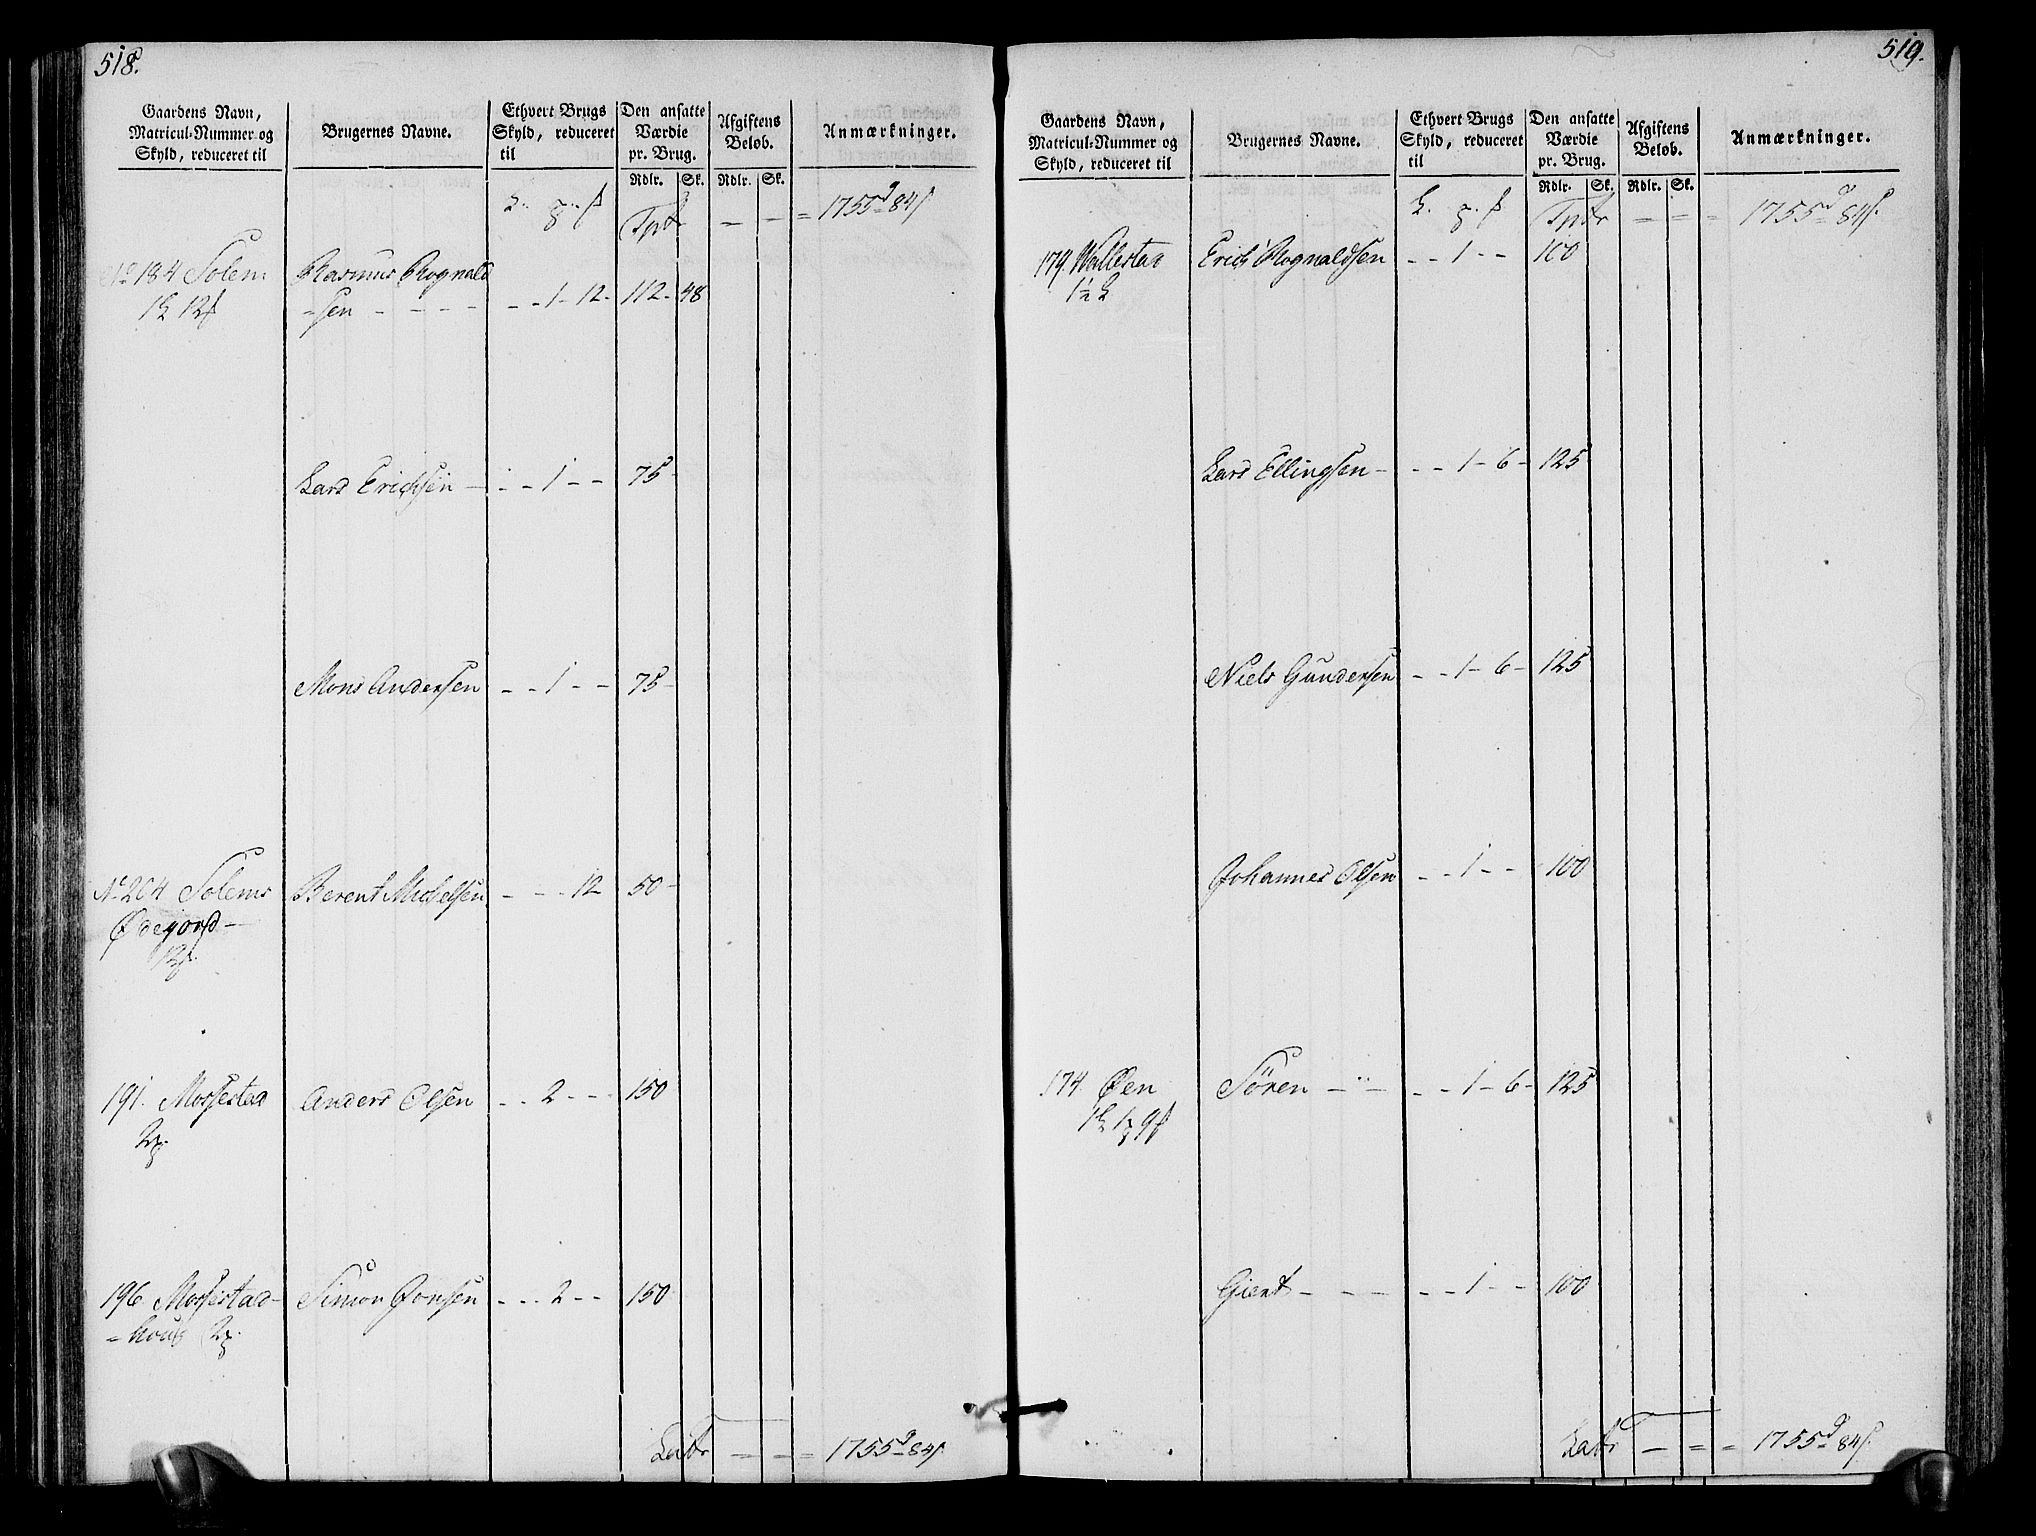 518.
Gaardens Navn, Matricul-Nummer og Skyld, reduceret til
Brugernes Navne.
Ethvert Brugs Skyld, reduceret til
Den ansatte Værdie pr. Brug.
Afgiftens Beløb.
Anmærkninger.
Rdlr. Sk. Rdlr. Sk.
Tpr - - = 1755 d 84 s
No 184 Solem Rasmus Rognald
-sen - - - - - - 1 - 12 - 112 - 48
Lars Erichsen - - - 1 - - 75 -
Mons Andersen - - 1 - - 75 -
No 204 Solems Berent Michelsen - - - 12 50 -
Ødegord -
191. Mossestad Anders Olsen - - 2 - - - 150
196 Mossestad- Simon Jonsen - - - 2 - - 150
= houg
Latr - - = 1755 d 84 s
519.
Gaardens Navn, Matricul-Nummer og Skyld, reduceret til
Brugernes Navne.
Ethvert Brugs Skyld, reduceret til
Den ansatte Værdie pr. Brug.
Afgiftens Beløb.
Anmærkninger.
Rdlr. Sk. Rdlr. Sk.
Tpr - = = 1755 d 84 s.
179. Wallestad Erich Rognaldsen - - 1 - - 100
Lars Ellingsen - - - 1 - 6 - 125
Niels Gundersen - - 1 - 6 - 125
Johannes Olsen - - 1 - - 100
174. Øen Sören - - - - 1 - 6 - 125
Giert - - - - - 1 - - 100
Latr - = = 1755 d 84 s.